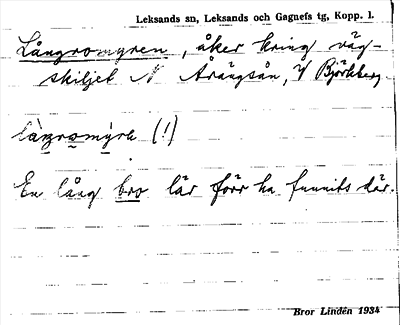 Leksands sn, Leksands och Gagnefs tg, Kopp. l.
Långromyren, åker kring väg-
skiljet N Årängsån, V Björkberg.
(!)
En lång bro lär förr ha funnits där.
Bror Lindén 1934